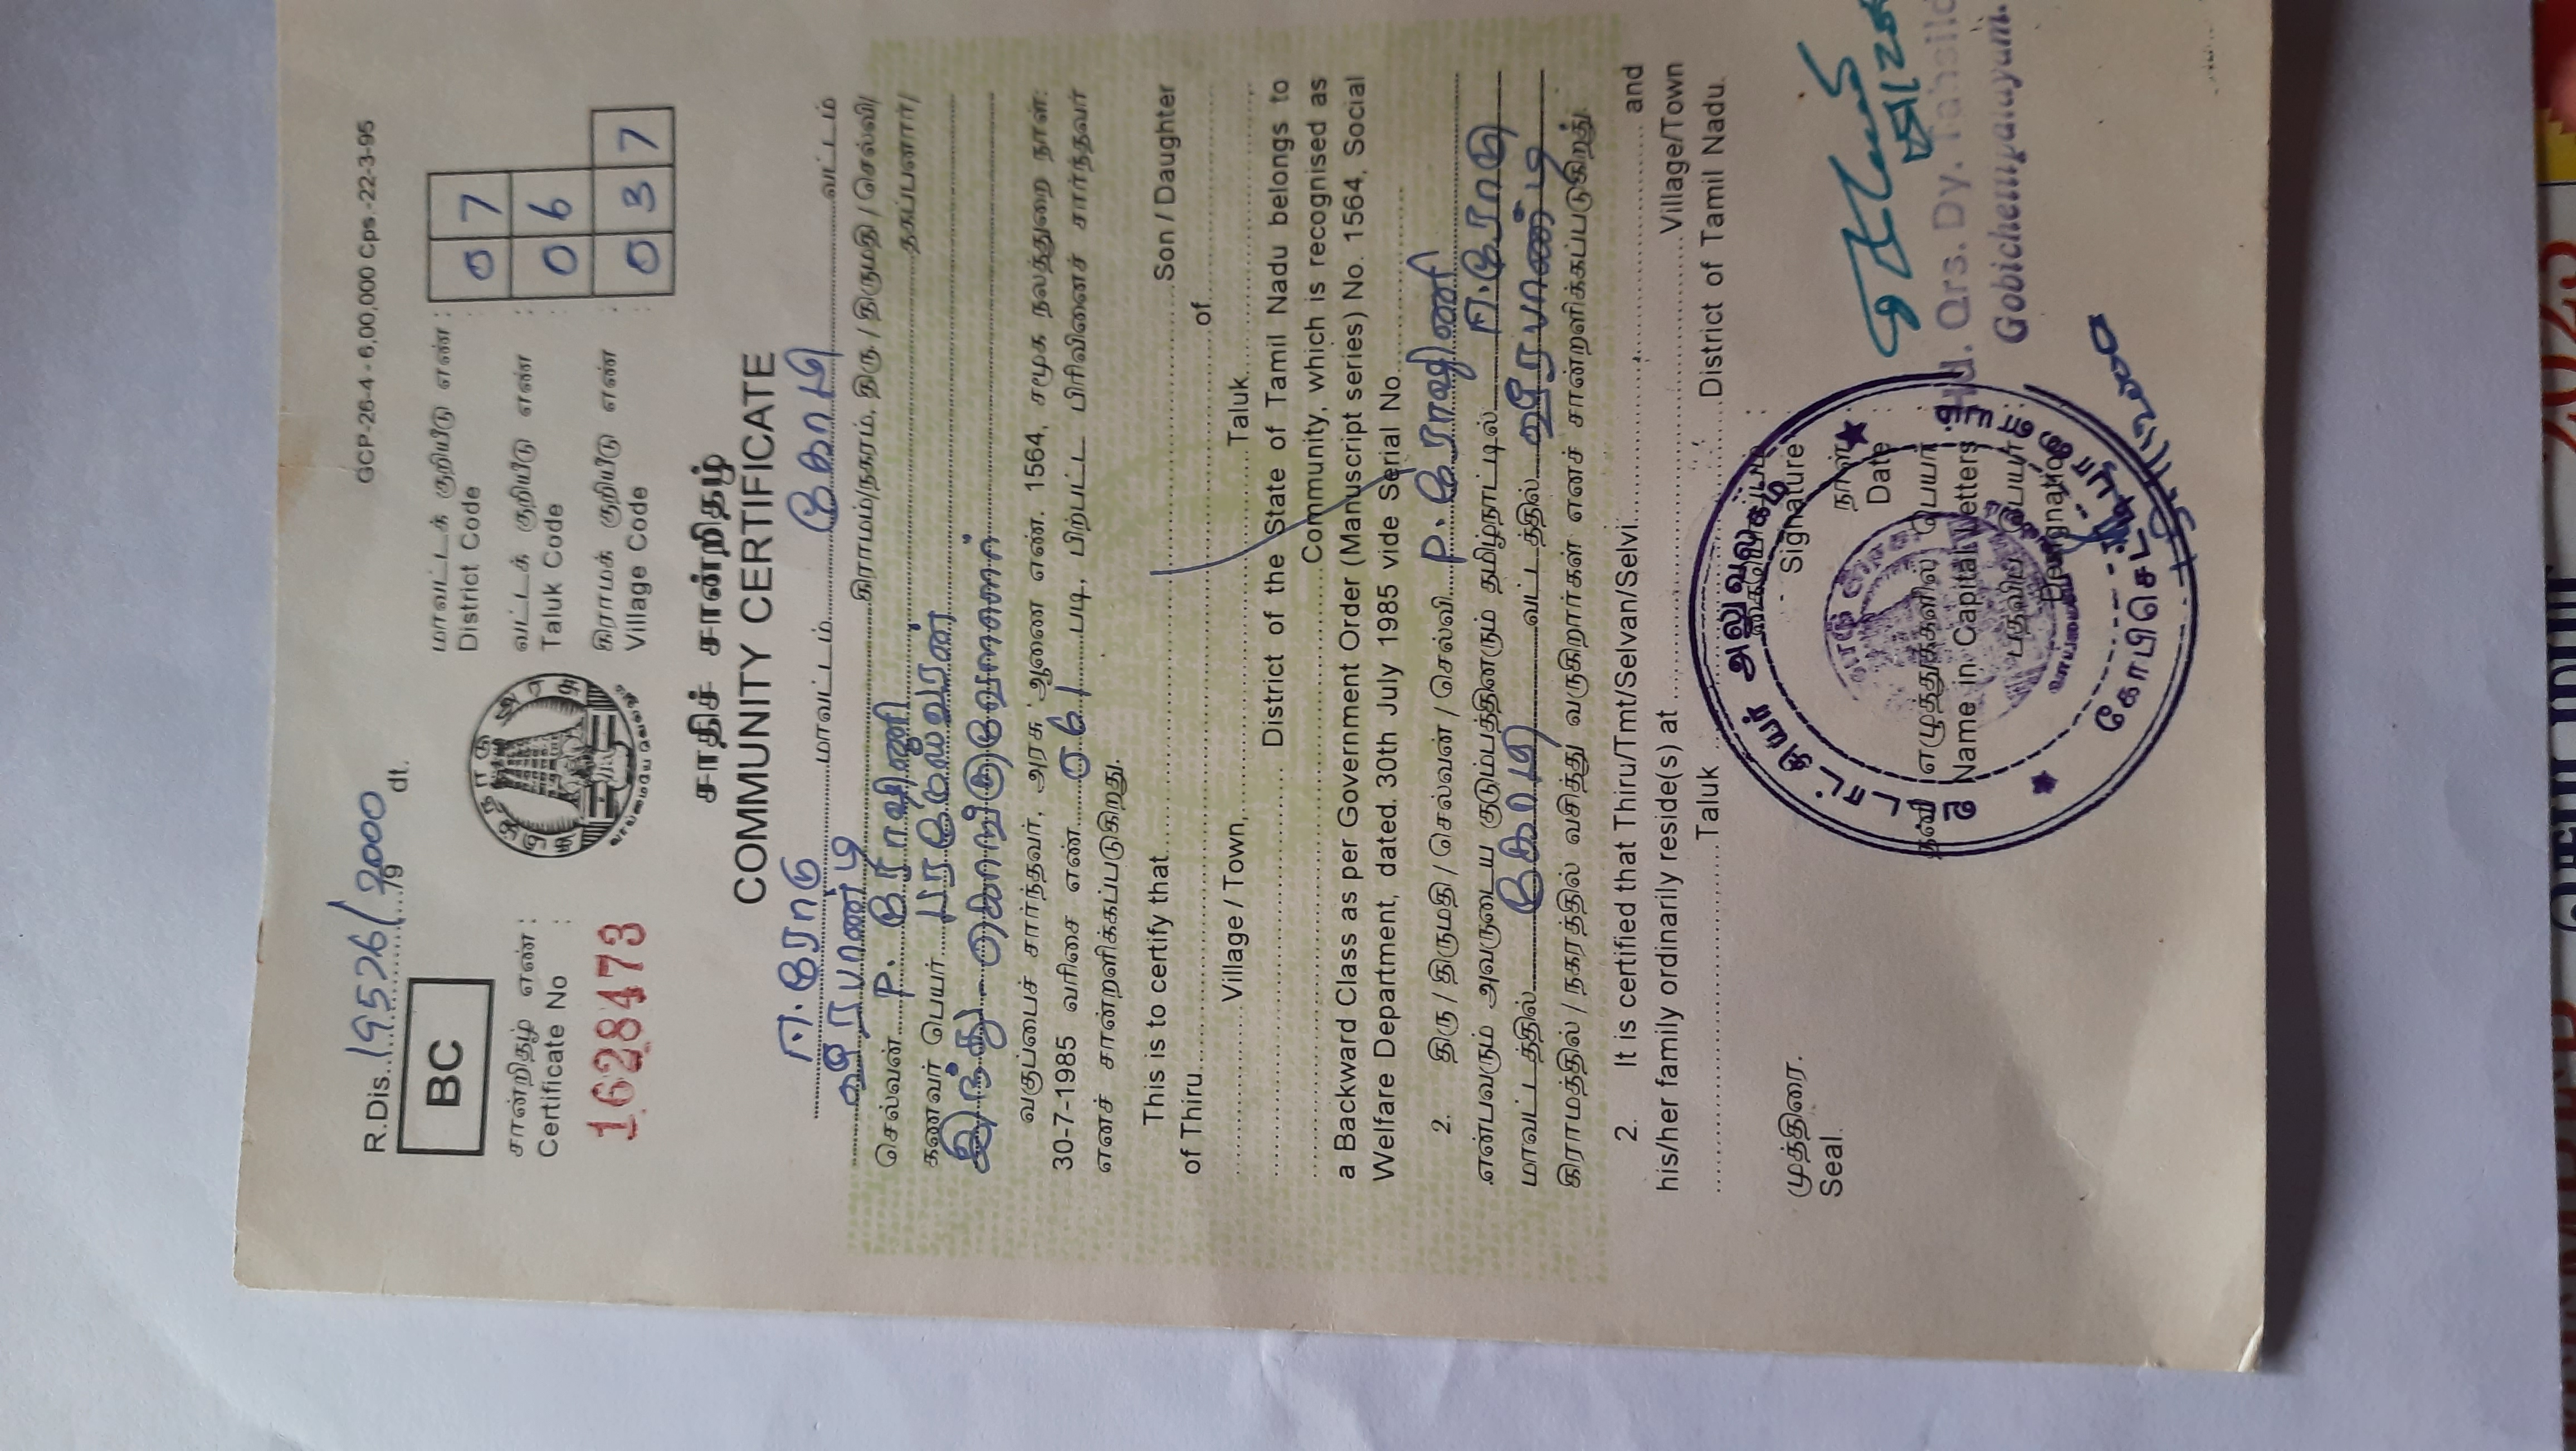 R.Dis. 19526/2000 dt.
/9
GCP-26-4 - 6,00,000 Cps.-22-3-95
BC
தமிழ்நாடு அரசு
வாய்மையே வெல்லும்
மாவட்டக் குறியீடு எண் :
District Code
0 7
வட்டக் குறியீடு எண் :
Taluk Code
0 6
கிராமக் குறியீடு எண் :
Village Code
0 3 7
சான்றிதழ் எண் :
Certificate No :
1628473
சாதிச் சான்றிதழ்
COMMUNITY CERTIFICATE
ஈரோடு மாவட்டம் கோபி வட்டம்
கிராமம்/நகரம், திரு / திருமதி / செல்வி/
செல்வன் P. ரோஷிணி
கணவர் பெயர் தகப்பனார்/
இந்து
வகுப்பைச் சார்ந்தவர், அரசு ஆணை எண். 1564, சமூக நலத்துறை நாள்:
30-7-1985 வரிசை எண் 061 படி, பிற்பட்ட பிரிவினைச் சார்ந்தவர்
எனச் சான்றளிக்கப்படுகிறது.
This is to certify that Son / Daughter
of Thiru of
Village / Town, Taluk
District of the State of Tamil Nadu belongs to
Community, which is recognised as
a Backward Class as per Government Order (Manuscript series) No. 1564, Social
Welfare Department, dated 30th July 1985 vide Serial No
2. திரு / திருமதி / செல்வன் / செல்வி P. ரோஷிணி
என்பவரும் அவருடைய குடும்பத்தினரும் தமிழ்நாட்டில் ஈரோடு
மாவட்டத்தில் கோபி வட்டத்தில்
கிராமத்தில் / நகரத்தில் வசித்து வருகிறார்கள் எனச் சான்றளிக்கப்படுகிறது
2. It is certified that Thiru/Tmt/Selvan/Selvi and
his/her family ordinarily reside(s) at Village/Town
Taluk District of Tamil Nadu.
முத்திரை.
Seal.
கையொப்பம் :
Signature
நாள் :
Date
தனி எழுத்துக்களில் பெயர் :
Name in Capital Letters
பதவிப் பெயர் :
Designation
வட்டாட்சியர் அலுவலகம்
Hd. Qrs. Dy. Tahsild
Gobichettipalayam.